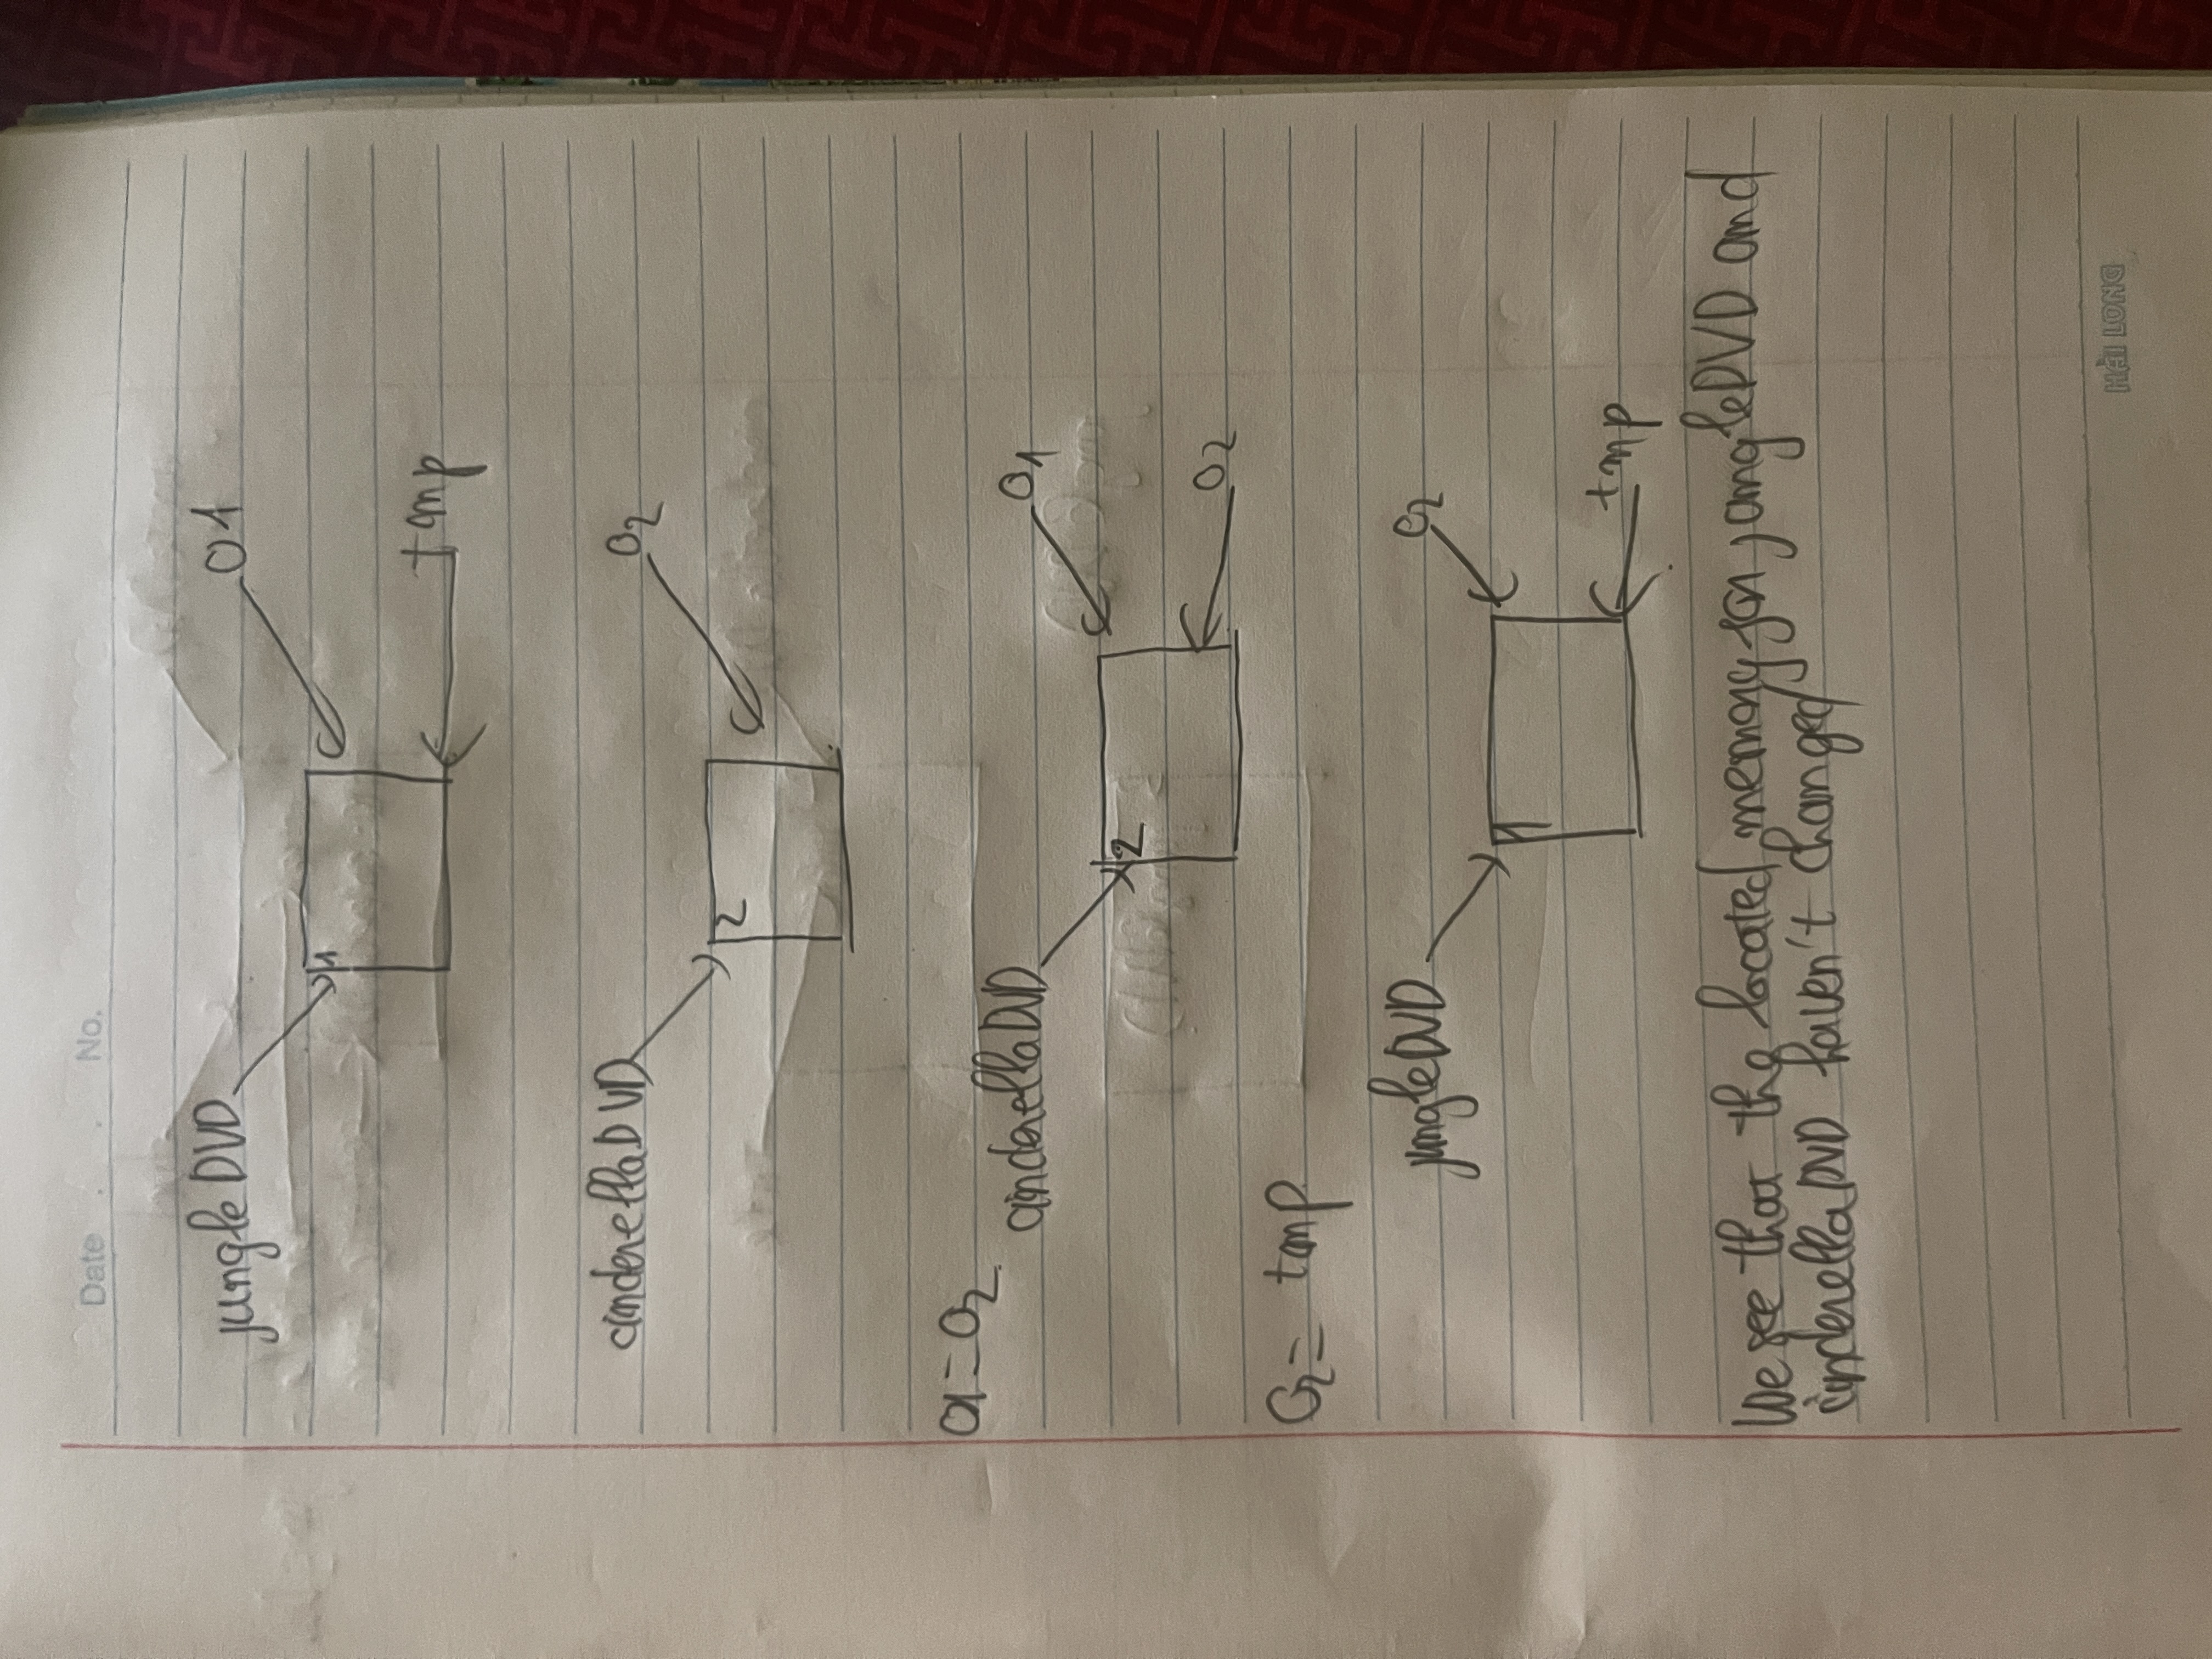 Date . . No.
jungleDVD
O1
1
tmp
cinderellaDVD
O2
2
O1=O2
cinderellaDVD
O1
2
O2
O2= tmp
jungleDVD
O2
1
tmp
We see that the located memory for jungleDVD and
cinderellaDVD haven't changed
HẢI LONG